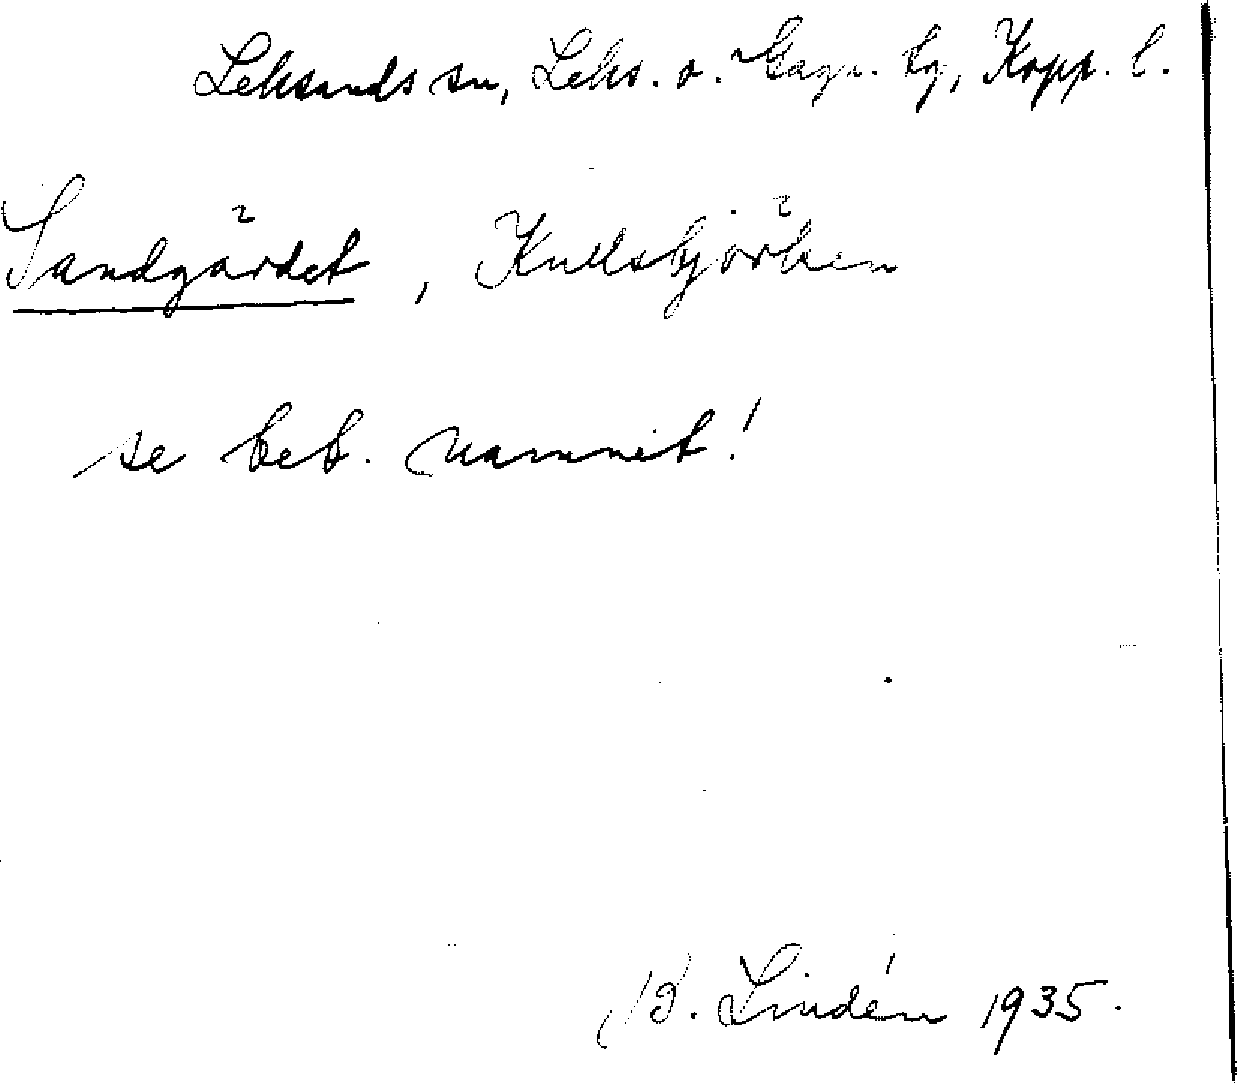 Leksands sn, Leks. o. Gagn. tg, Kopp. l.
Sandgärdet, Kullsbjörken
se bet. namnet!
B. Lindén 1935.